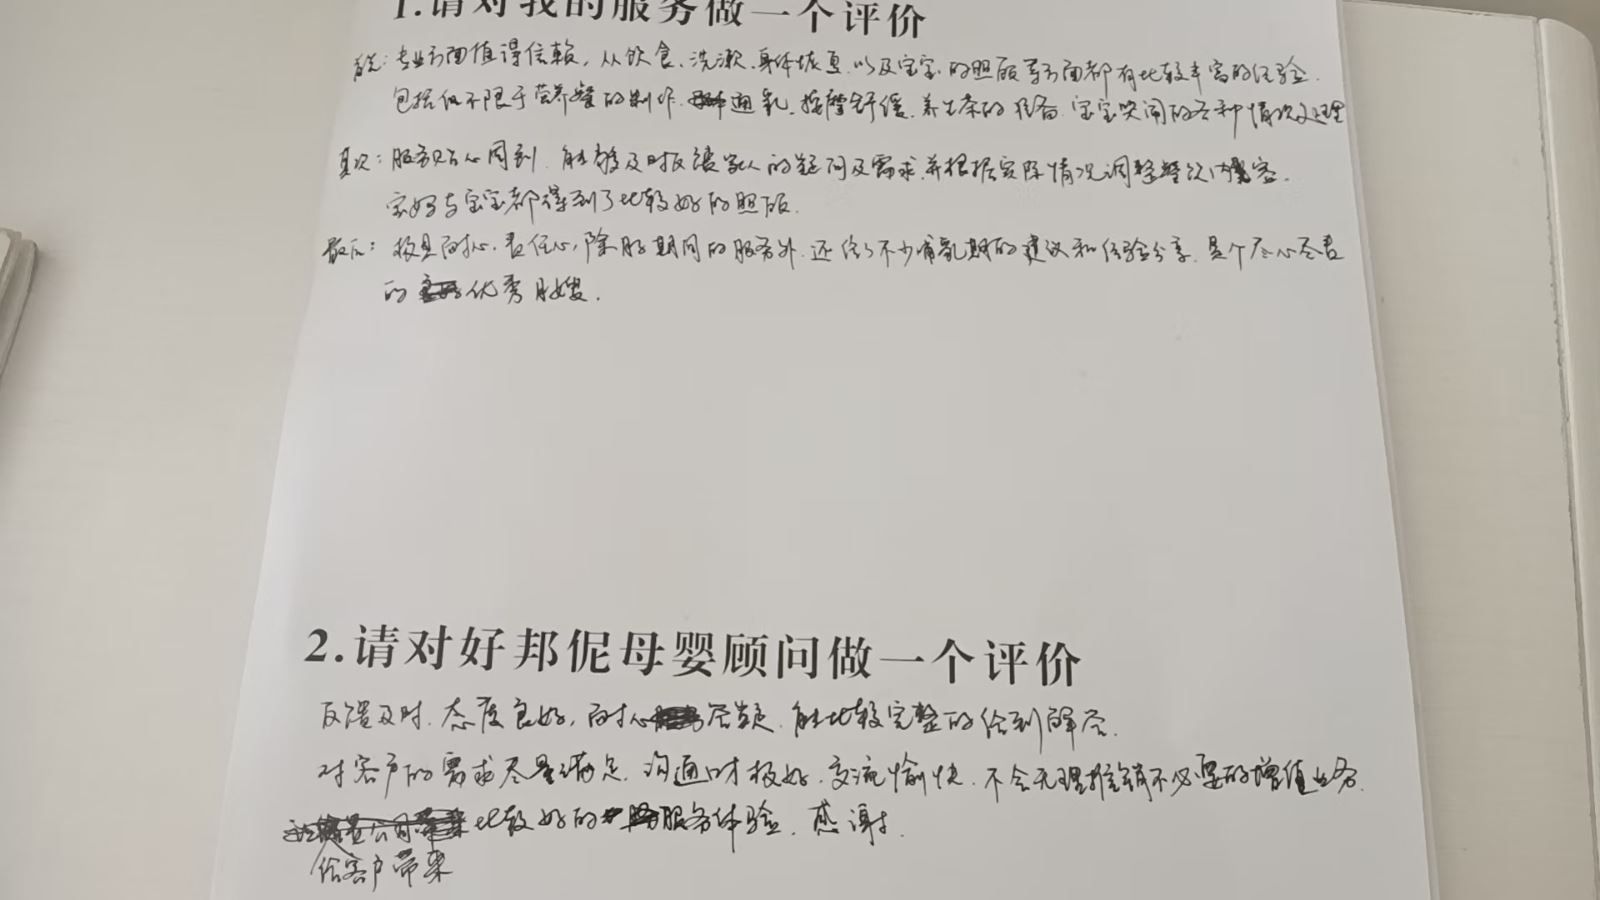 1.请对我的服务做一个评价
首先：专业方面值得信赖，从饮食、洗漱、身体恢复，以及宝宝的照顾等方面都有比较丰富的经验，
包括但不限于营养餐的制作、通乳、按摩舒缓、养生茶的准备、宝宝哭闹的各种情况处理
其次：服务贴心周到，能够及时反馈家人的疑问及需求，并根据实际情况调整内容，
宝妈与宝宝都得到了比较好的照顾。
最后：极具耐心、责任心，除服务期间的服务外，还给了不少哺乳期的建议和经验分享，是个尽心尽责
的优秀月嫂。
2.请对好邦伲母婴顾问做一个评价
反馈及时，态度良好，耐心答疑，能比较完整的给到解答。
对客户的需求尽量满足，沟通口才极好，交流愉快，不会无理推销不必要的增值业务，
给客户带来比较好的服务体验，感谢！